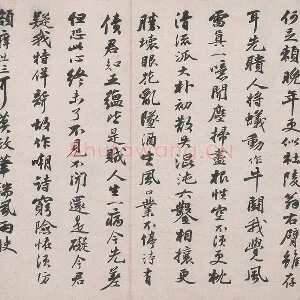 何足賴晚年更似杜陵翁右臂雖存
耳先聵人將蟻動作牛鬥我覺風
雷真一噫聞塵掃盡根性空不須更枕
清流派大朴初散失混沌六鑿相攘更
勝壞眼花亂墜酒生風口業不停詩有
債君知五蘊皆是賊人生一病今先差
但恐此心終未了不見不聞還是礙今君
疑我特佯聾故作嘲詩窮險怪須防
額癢出三耳莫放筆端風雨快